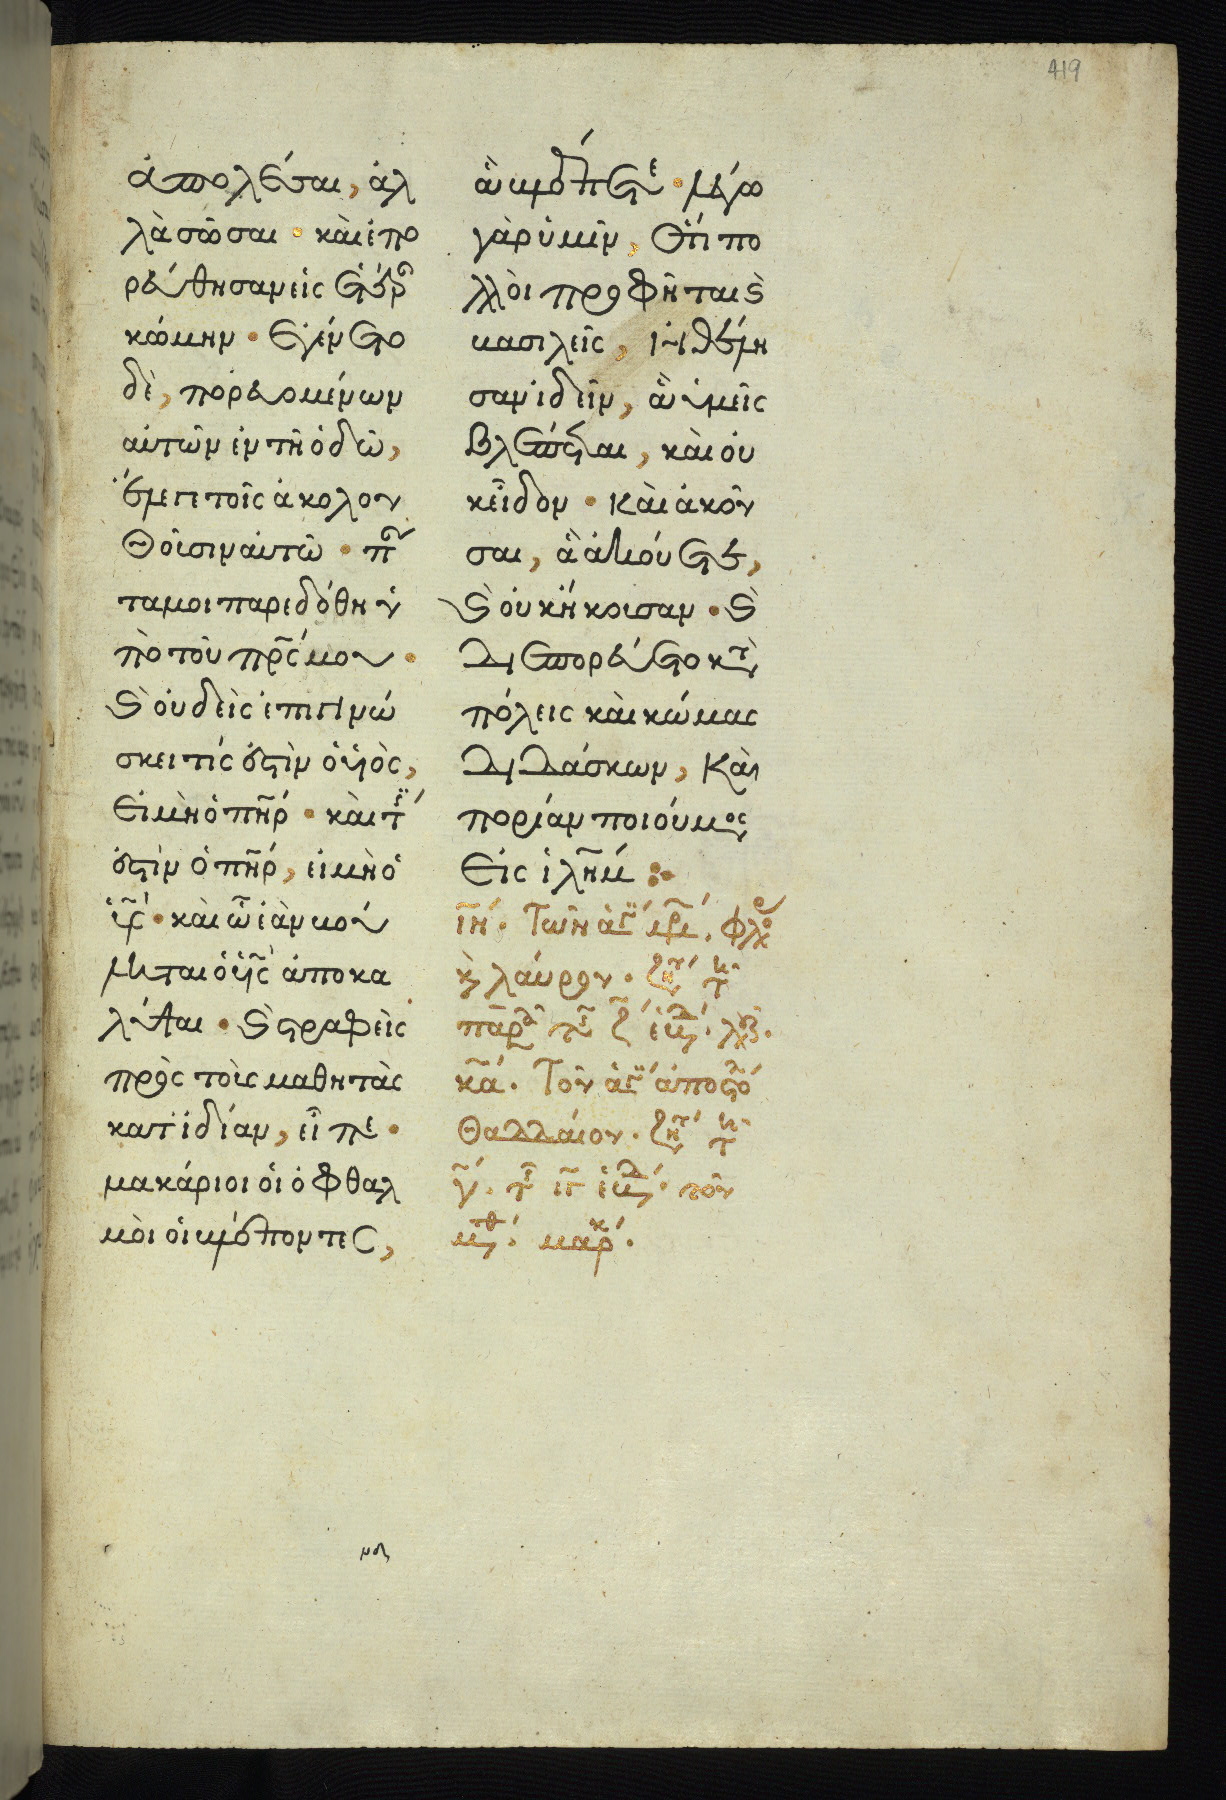 419
ἀπολέσαι, ἀλ
λὰ σῶσαι · καὶ ἐπο
ρεύθησαν εἰς ἑτέρ
κώμην · Εγένετο
δὲ, πορευομένων
αὐτῶν ἐν τῆ ὁδῶ,
ἔμειν τοῖς ἀκολου
θοῦσιν αὐτῶ · πᾶν
τα μοι παρεδόθη ὑ
πὸ τοῦ πρς μου ·
καὶ οὐδεὶς ἐπιγινώ
σκει τίς ἐστὶν ὁ υἱὸς,
εἰ μὴ ὁ πηρ · καὶ τί
ἐστὶν ὁ πηρ, εἰ μὴ ὁ
υς · καὶ ὧ ἐὰν βού
ληται ὁ υς ἀποκα
λύψαι · καὶ στραφεὶς
πρὸς τοὺς μαθητὰς
κατ ἰδίαν, εἶπε ·
μακάριοι οἱ ὀφθαλ
μοὶ οἱ βλέποντες,
ἃ βλέπετε · λέγω
γὰρ ὑμῖν, ὅτι πο
λλοὶ προφῆται καὶ
βασιλεῖς, ἠθέλη
σαν ἰδεῖν, ἃ ὑμεῖς
βλέπεται, καὶ οὐ
κ εἶδον · καὶ ἀκοῦ
σαι, ἃ ἀκούετε,
καὶ οὐκ ἤκουσαν · καὶ
διεπορεύετο κατὰ
πόλεις καὶ κώμας
διδάσκων, καὶ
πορείαν ποιούμενος
εἰς ἱλημ :
ιη. Τῶν ἁγ μρ. φλώρου
καὶ λαύρου. ζητ
κα. Τοῦ ἁγ ἀποστό
Θαλλαίου. ζητ
τοῦ